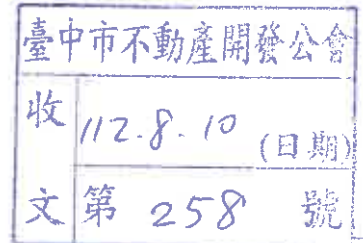 臺中市不動產開發公會
收 112.8.10 (日期)
文 第 258 號